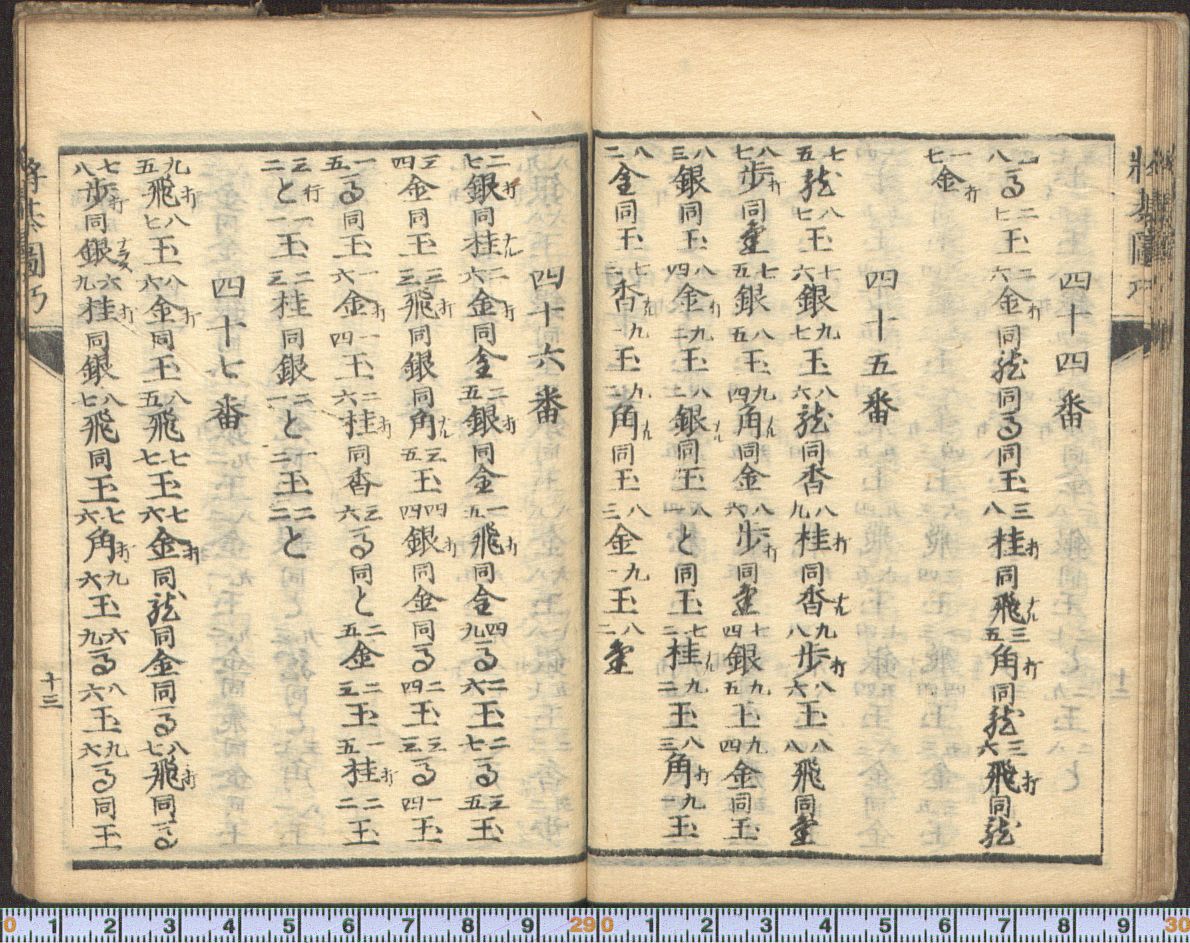 四十四番
二八馬二七玉二六金打同龍同馬同玉三八桂打同飛なる三五角打同龍三六飛打同龍
一七金打
四十五番
七五龍八七玉七六銀九七玉八六龍同香八九桂打同香なる九八歩打八六玉八八飛同杏
八七歩打同杏七五銀八五玉九四角なる同金八六歩打同杏七四銀九五玉九四金同玉
八三銀同玉八四金打九二玉八一銀なる同玉八一と同玉七二桂なる九二玉八三角打九一玉
八二全同玉七二香なる九一玉九二角なる同玉八三金九一玉八二杏
四十六番
二七銀打同桂なる二六金打同全二五銀打同金一五飛打同全四九馬二六玉二七馬三五玉
三四金同玉三三飛なる同銀同角なる三五玉四四銀打同金同馬二四玉三三馬一四玉
一五馬同玉一六金打一四玉二六桂打同香三六馬同と二五金二三玉一五桂打二二玉
三二と行一一玉二三桂同銀二一と一二玉二二と
四十七番
九五飛打八七玉八六金打同玉八五飛七七玉七六金打同龍同金同馬八七飛打同馬
七八歩打同銀六九桂打同銀八七飛同玉七六角打九六玉六九馬八六玉九六馬同玉
将棊圖巧
十三